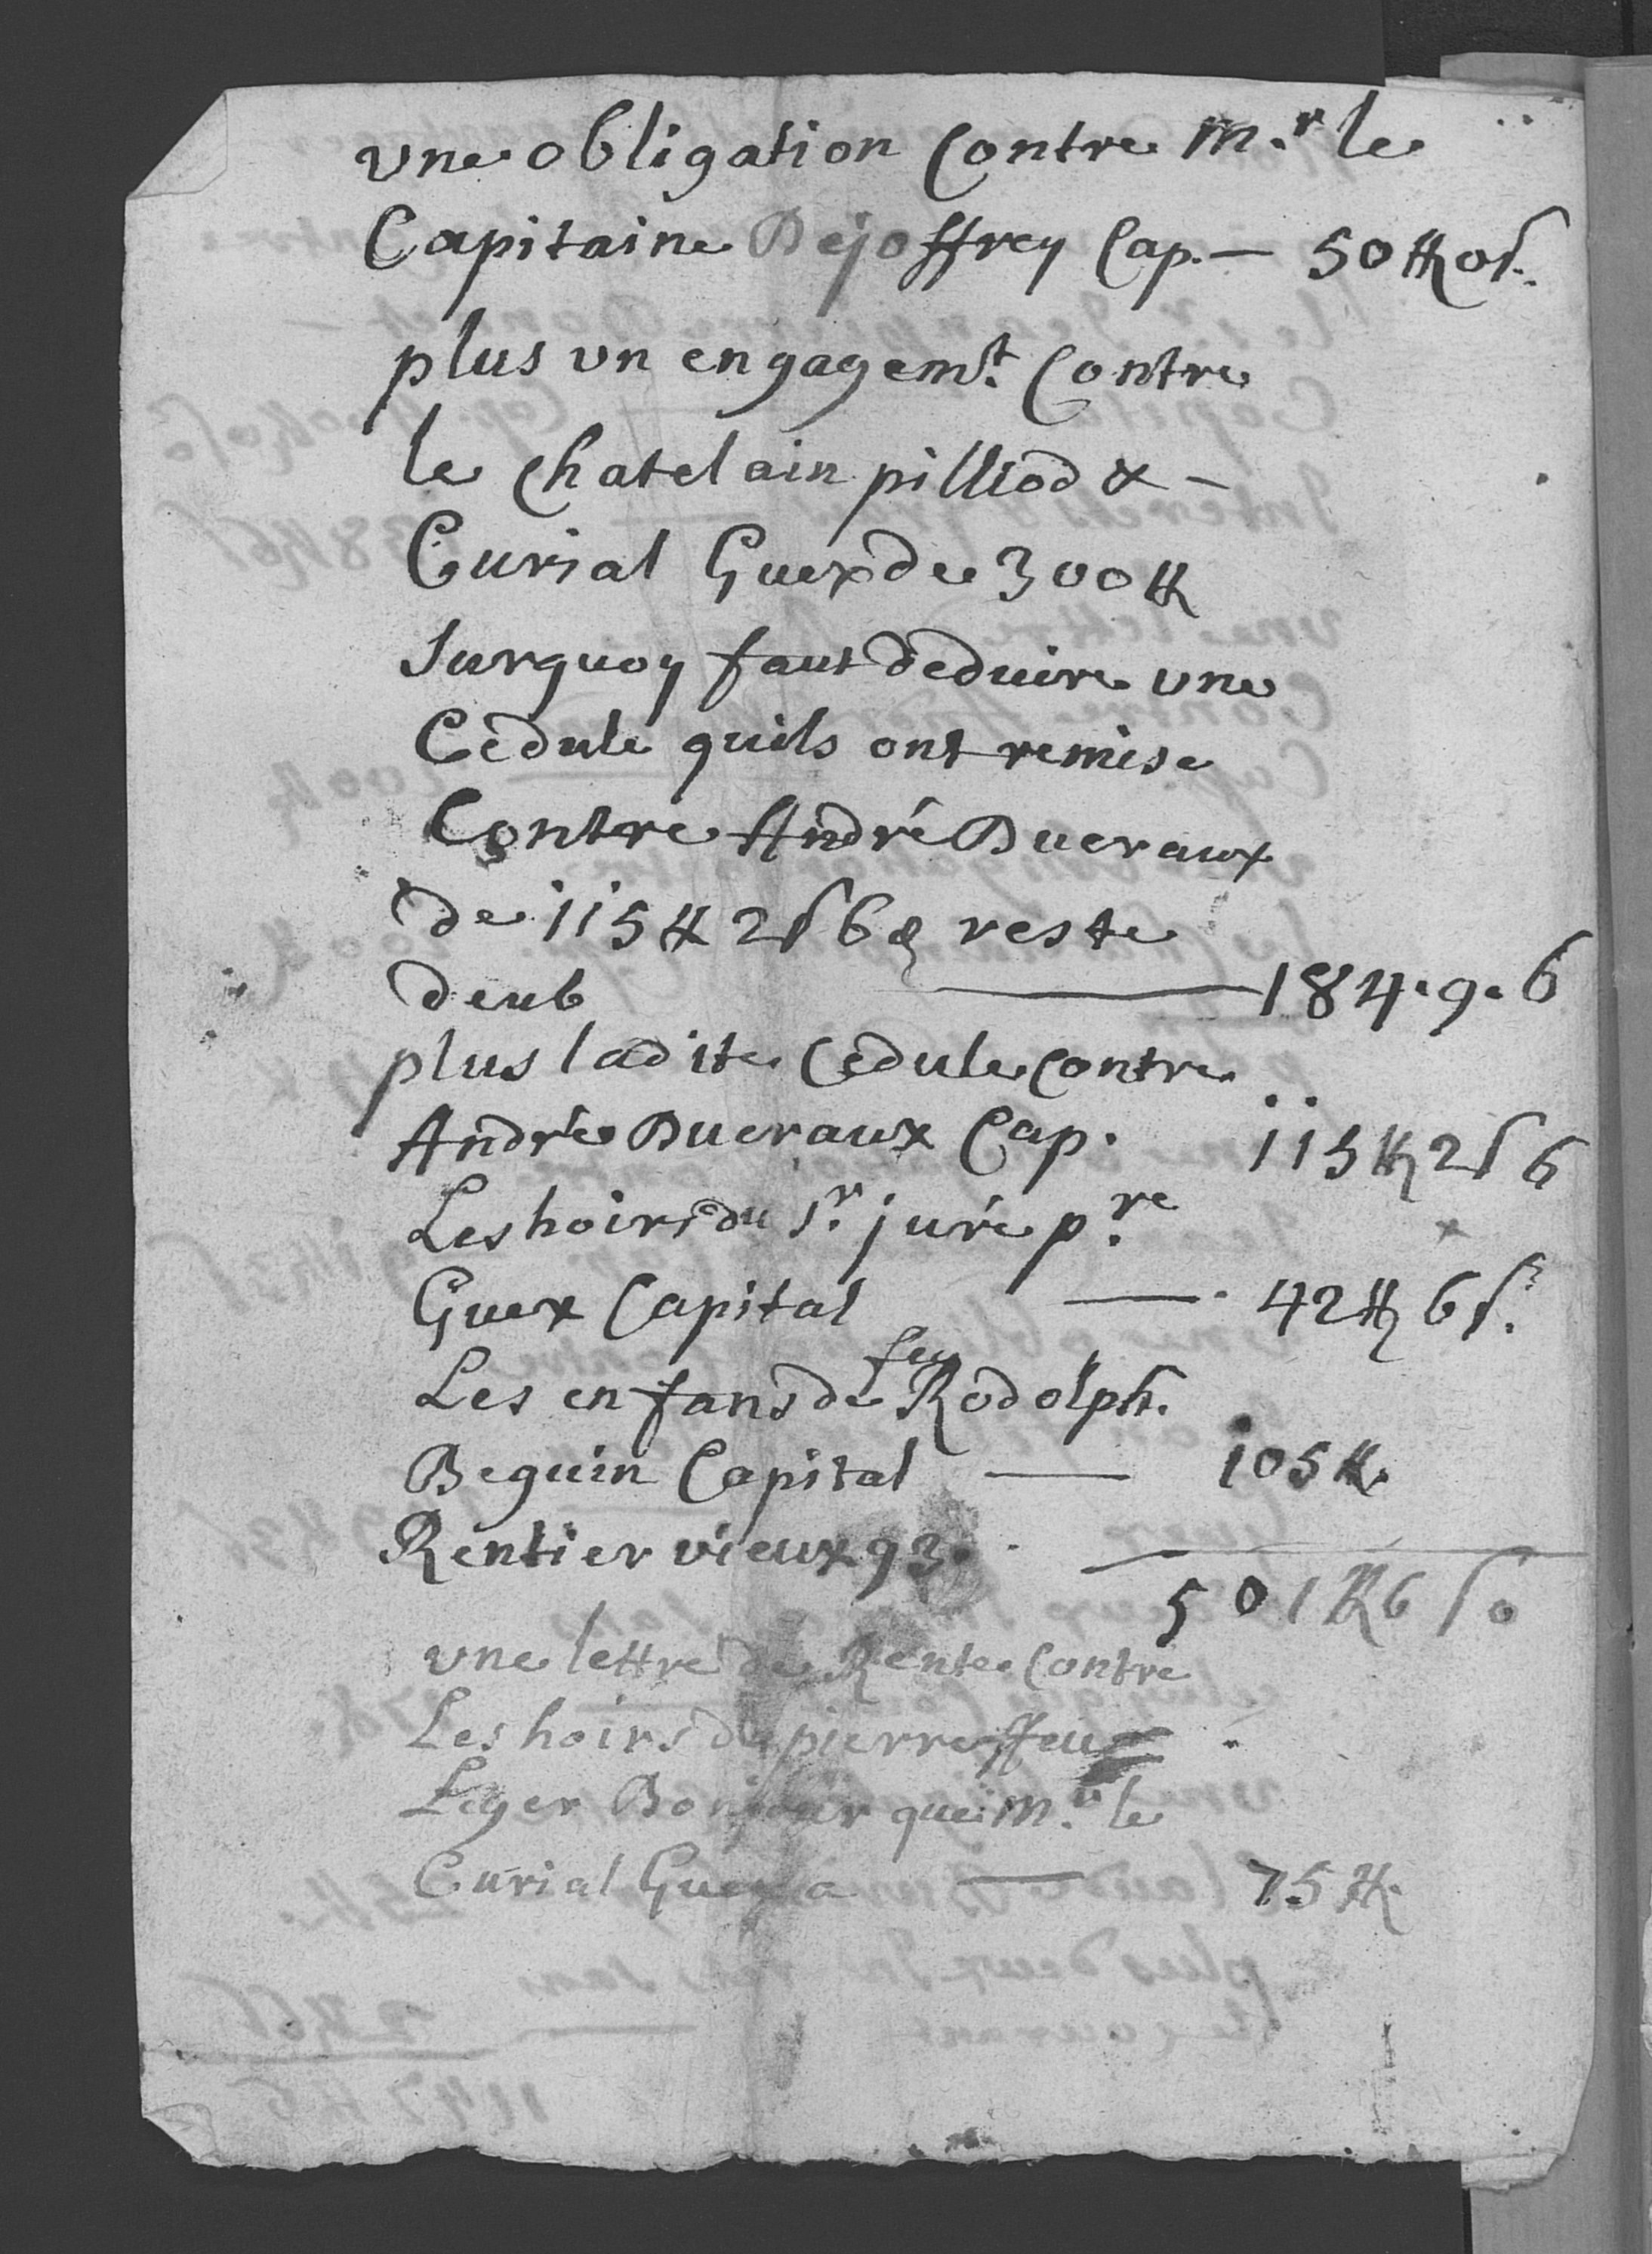 vne obligation Contre Mr. le
Capitaine Dejoffrey Cap. — 50 ₶ 0 s.
plus vn engagemt. Contre
le Chatelain pilliod & –
Curial Guex de 300 ₶
Surquoy faut deduire vne
Cedule quils ont remise
Contre André Bueraux
de 115 ₶ 2 s 6 d reste
deub — 184. 9. 6
plus ladite Cedule Contre
André Bueraux Cap. 115 ₶ 2 s 6
Les hoirs du Sr. juré pre.
Guex Capital — 42 ₶ 6 s.
Les enfans de feu Rodolph.
Beguin Capital — 105 ₶.
Rentier vieux 93.
501 ₶ 6 s 0
vne lettre de Rente Contre
Les hoirs de pierre ffeu
Leger Bonjour que Mr. le
Curial Guex a — 75 ₶.